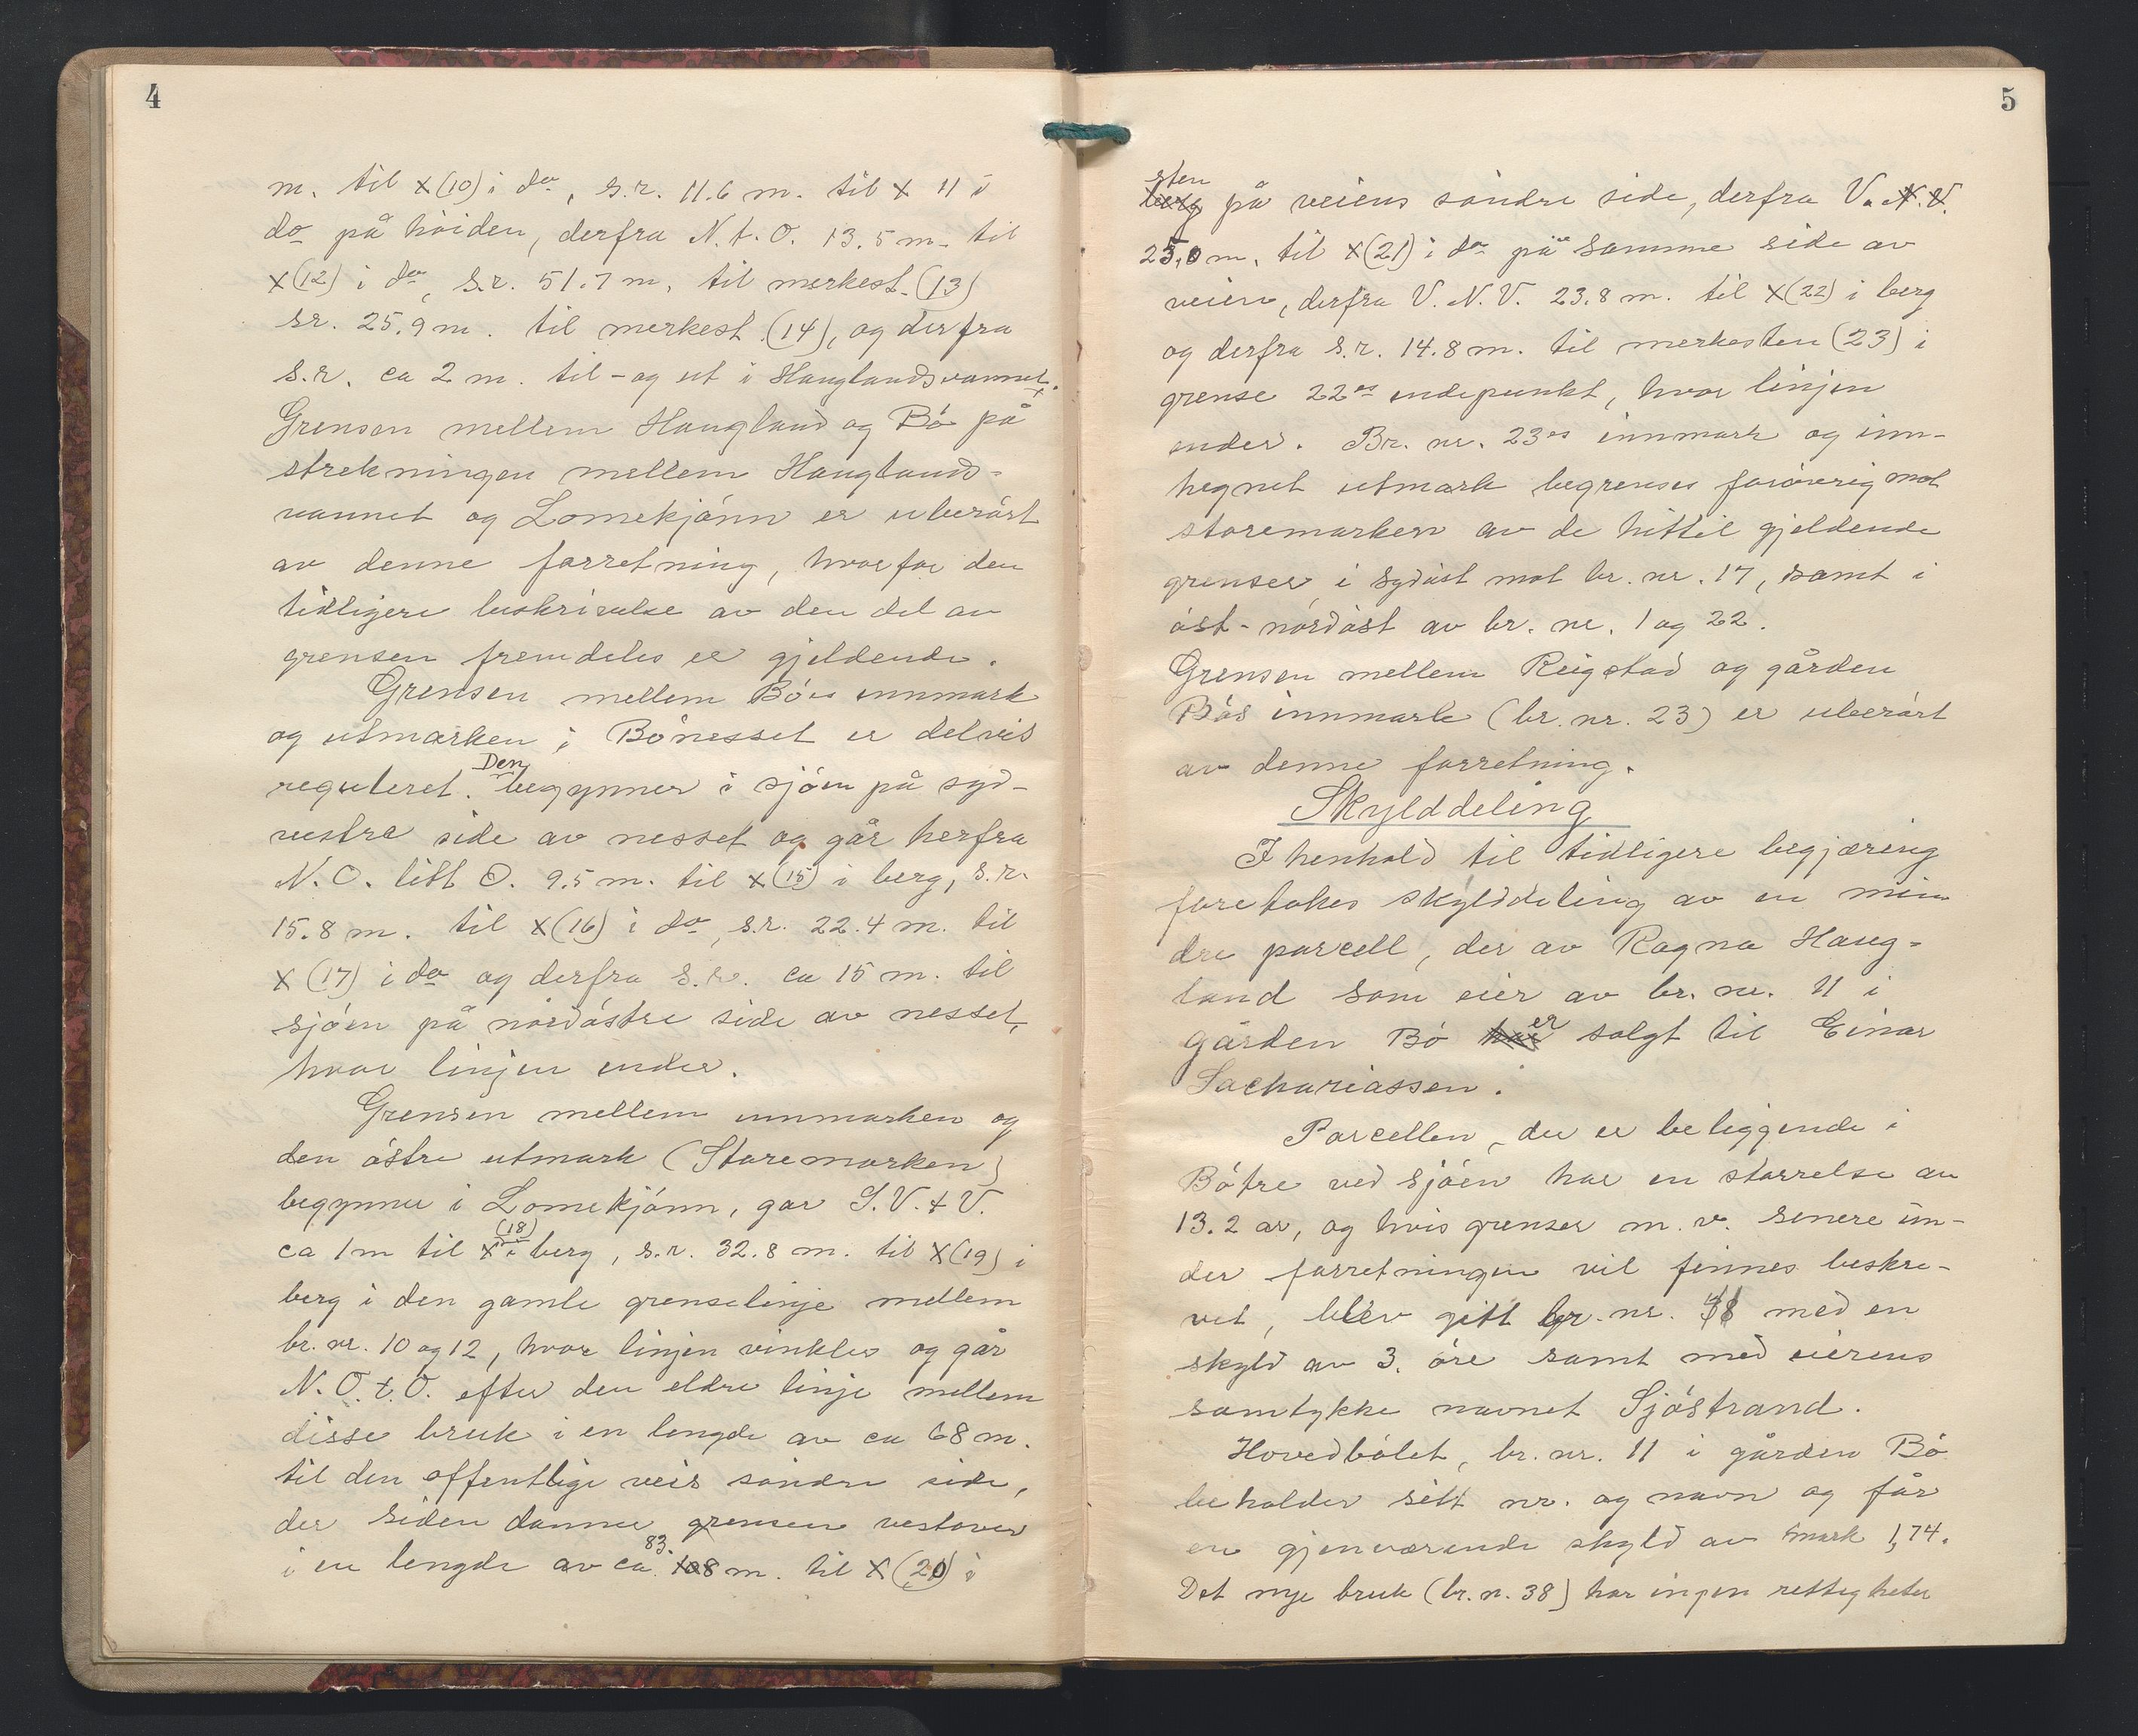 4
m. til x(10) i do, s.r. 11.6 m. til x 11 i
do på høiden, derfra N.t.O. 13.5 m. til
x(12) i do, s.r. 51.7 m. til merkest. (13)
sr. 25.9 m. til merkest. (14), og derfra
s.r. ca 2 m. til - og ut i Hauglandsvannet.
Grensen mellem Haugland og Bø på
strekningen mellem Hauglands-
vannet og Lomekjønn er uberørt
av denne forretning, hvorfor den
tidligere beskrivelse av den del av
grensen fremdeles er gjeldende.
Grensen mellem Bøes innmark
og utmarken i Bønesset er delvis
reguleret. Den begynner i sjøen på syd-
vestre side av nesset og går herfra
N.O. litt O. 9.5 m. til x(15) i berg, s.r.
15.8 m. til x(16) i do, s.r. 22.4 m. til
x(17) i do og derfra s.r. ca 15 m. til
sjøen på nordøstre side av nesset,
hvor linjen ender.
Grensen mellem innmarken og
den østre utmark (Storemarken)
begynner i Lomekjønn, gar S.V.t.V.
ca 1 m til x (18) i berg, s.r. 32.8 m. til x(19) i
berg i den gamle grenselinje mellem
br. nr. 10 og 12, hvor linjen vinkles og går
N.O.t.O. efter den eldre linje mellem
disse bruk i en lengde av ca 68 m.
til den offentlige veis søndre side,
der siden danner grensen vestover
i en lengde av ca. 83. m. til x(20) i
5
sten på veiens søndre side, derfra V.
25.0 m. til x(21) i do på samme side av
veien, derfra V.N.V. 23.8 m. til x(22) i berg
og derfra s.r. 14.8 m. til merkesten (23) i
grense 22es endepunkt, hvor linjen
ender. Br. nr. 23es innmark og inn-
hegnet utmark begrenses forøvrig mot
storemarken av de hittil gjeldende
grenser i sydøst mot br. nr. 17, samt i
øst-nordøst av br. nr. 1 og 22.
Grensen mellem Reigstad og gården
Bøs innmark (br. nr. 23) er uberørt
av denne forretning.
Skylddeling
I henhold til tidligere begjæring
foretokes skylddeling av en min
dre parcell, der av Ragna Haug-
land som eier av br. nr. 11 i
gården Bø er solgt til Einar
Sachariassen.
Parcellen, der er beliggende i
Bøtre ved sjøen har en størrelse av
13.2 ar, og hvis grenser m.v. senere un-
der forretningen vil finnes beskre-
vet, blev gitt br. nr. med en
skyld av 3. øre samt med eierens
samtykke navnet Sjøstrand.
Hovedbølet, br. nr. 11 i gården Bø
beholder sitt nr. og navn og får
en gjenværende skyld av mark 1,74.
Det nye bruk (br. n. 38) har ingen rettigheter